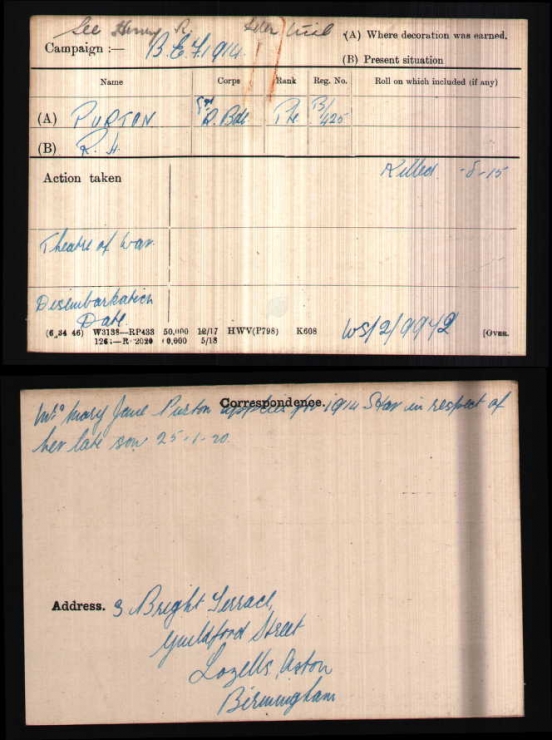 See Henry R.
Campaign :— B.E.F. 1914.
(A) Where decoration was earned.
(B) Present situation
Name Corps Rank Reg. No. Roll on which included (if any)
(A) PURTON R. Bde Pte B/ 425
(B) R. H.
Action taken Killed -8-15
Theatre of War
Disembarkation
Date
(6 34 46) W3138—RP433 50,000 12/17 HWV(P798) K608
5/18
WS/2/9942
[Over.
Correspondence.
Mrs Mary Jane Purton applies for 1914 Star in respect of
her late son 25-1-20.
Address. 3 Bright Terrace,
Guildford Street
Lozells, Aston
Birmingham